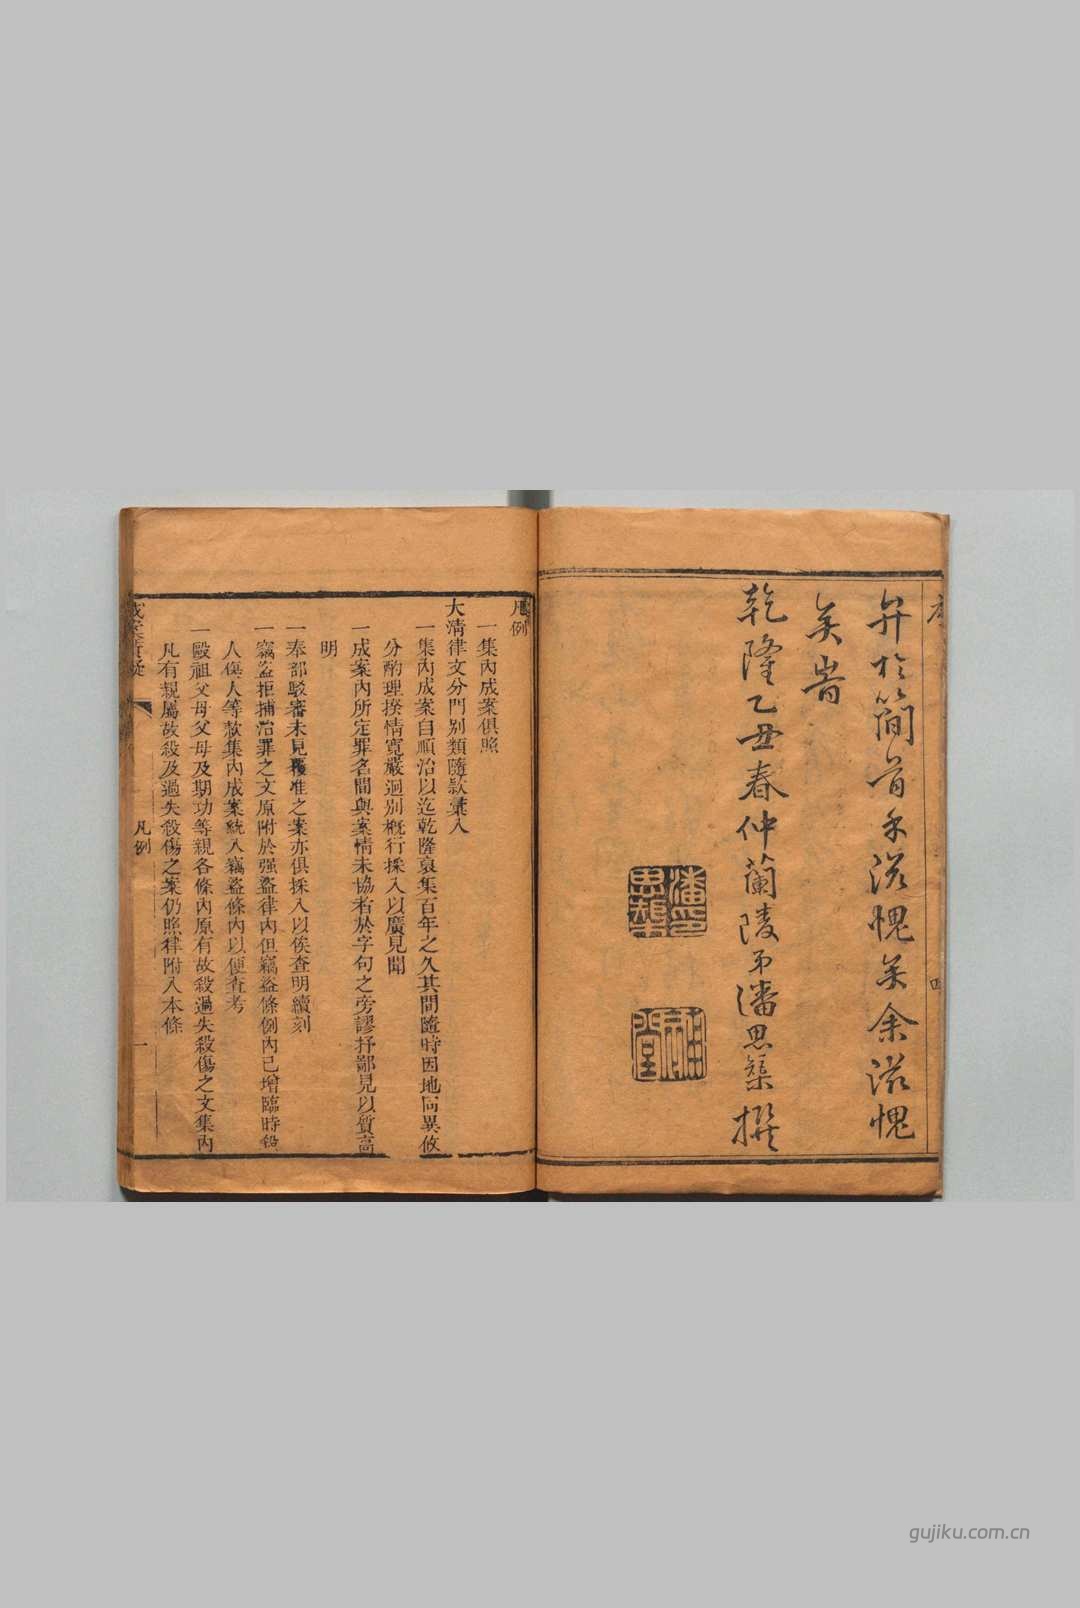 弁於簡首手滋愧矣余滋愧
矣旹
乾隆乙丑春仲蘭陵弟潘思榘撰
潘印思榘
補堂
凡例
一集內成案俱照
大清律文分門別類隨款彙入
一集內成案自順治以迄乾隆裒集百年之久其間隨時因地同異攸
分酌理揆情寬嚴迥別概行採入以廣見聞
一成案內所定罪名間與案情未協者於字句之旁謬抒鄙見以質高
明
一奉部駁審未見覆准之案亦俱採入以俟查明續刻
一竊盜拒捕治罪之文原附於强盜律內但竊盜條例內已增臨時殺
人傷人等款集內成案統入竊盜條內以便查考
一毆祖父母父母及期功等親各條內原有故殺過失殺傷之文集內
凡有親屬故殺及過失殺傷之案仍照律附入本條
成案質疑
凡例
一
gujiku.com.cn